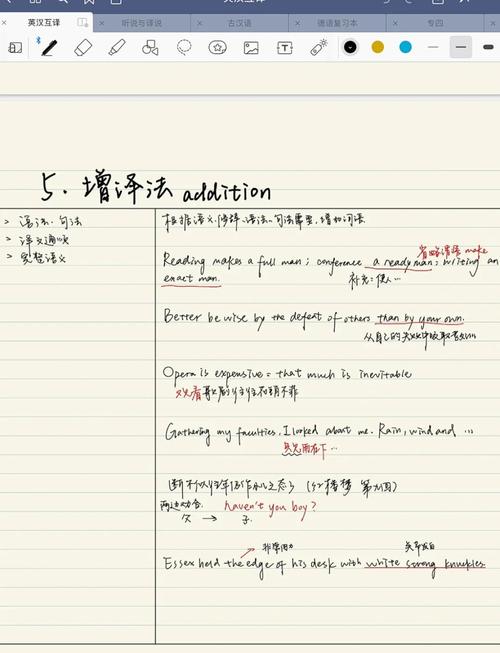 英汉互译
英汉互译 听说与译说 古汉语 德语复习本 专四
5. 增译法 addition
> 语法、句法
> 译义通顺
> 完整语义
根据语义、修辞、语法、句法需要,增加词语
省略谓语 make
Reading makes a full man; conference a ready man; writing an
exact man.
补充:使人…
Better be wise by the defeat of others than by your own.
从自己的失败中吸取
Opera is expensive: that much is inevitable
观看歌剧往往
Gathering my faculties, I looked about me. Rain, wind and ...
只见雨在下…
(红楼梦 第 回)
haven't you boy?
父 → 子
非常用力 关节发白
Essex held the edge of his desk with white strong knuckles.